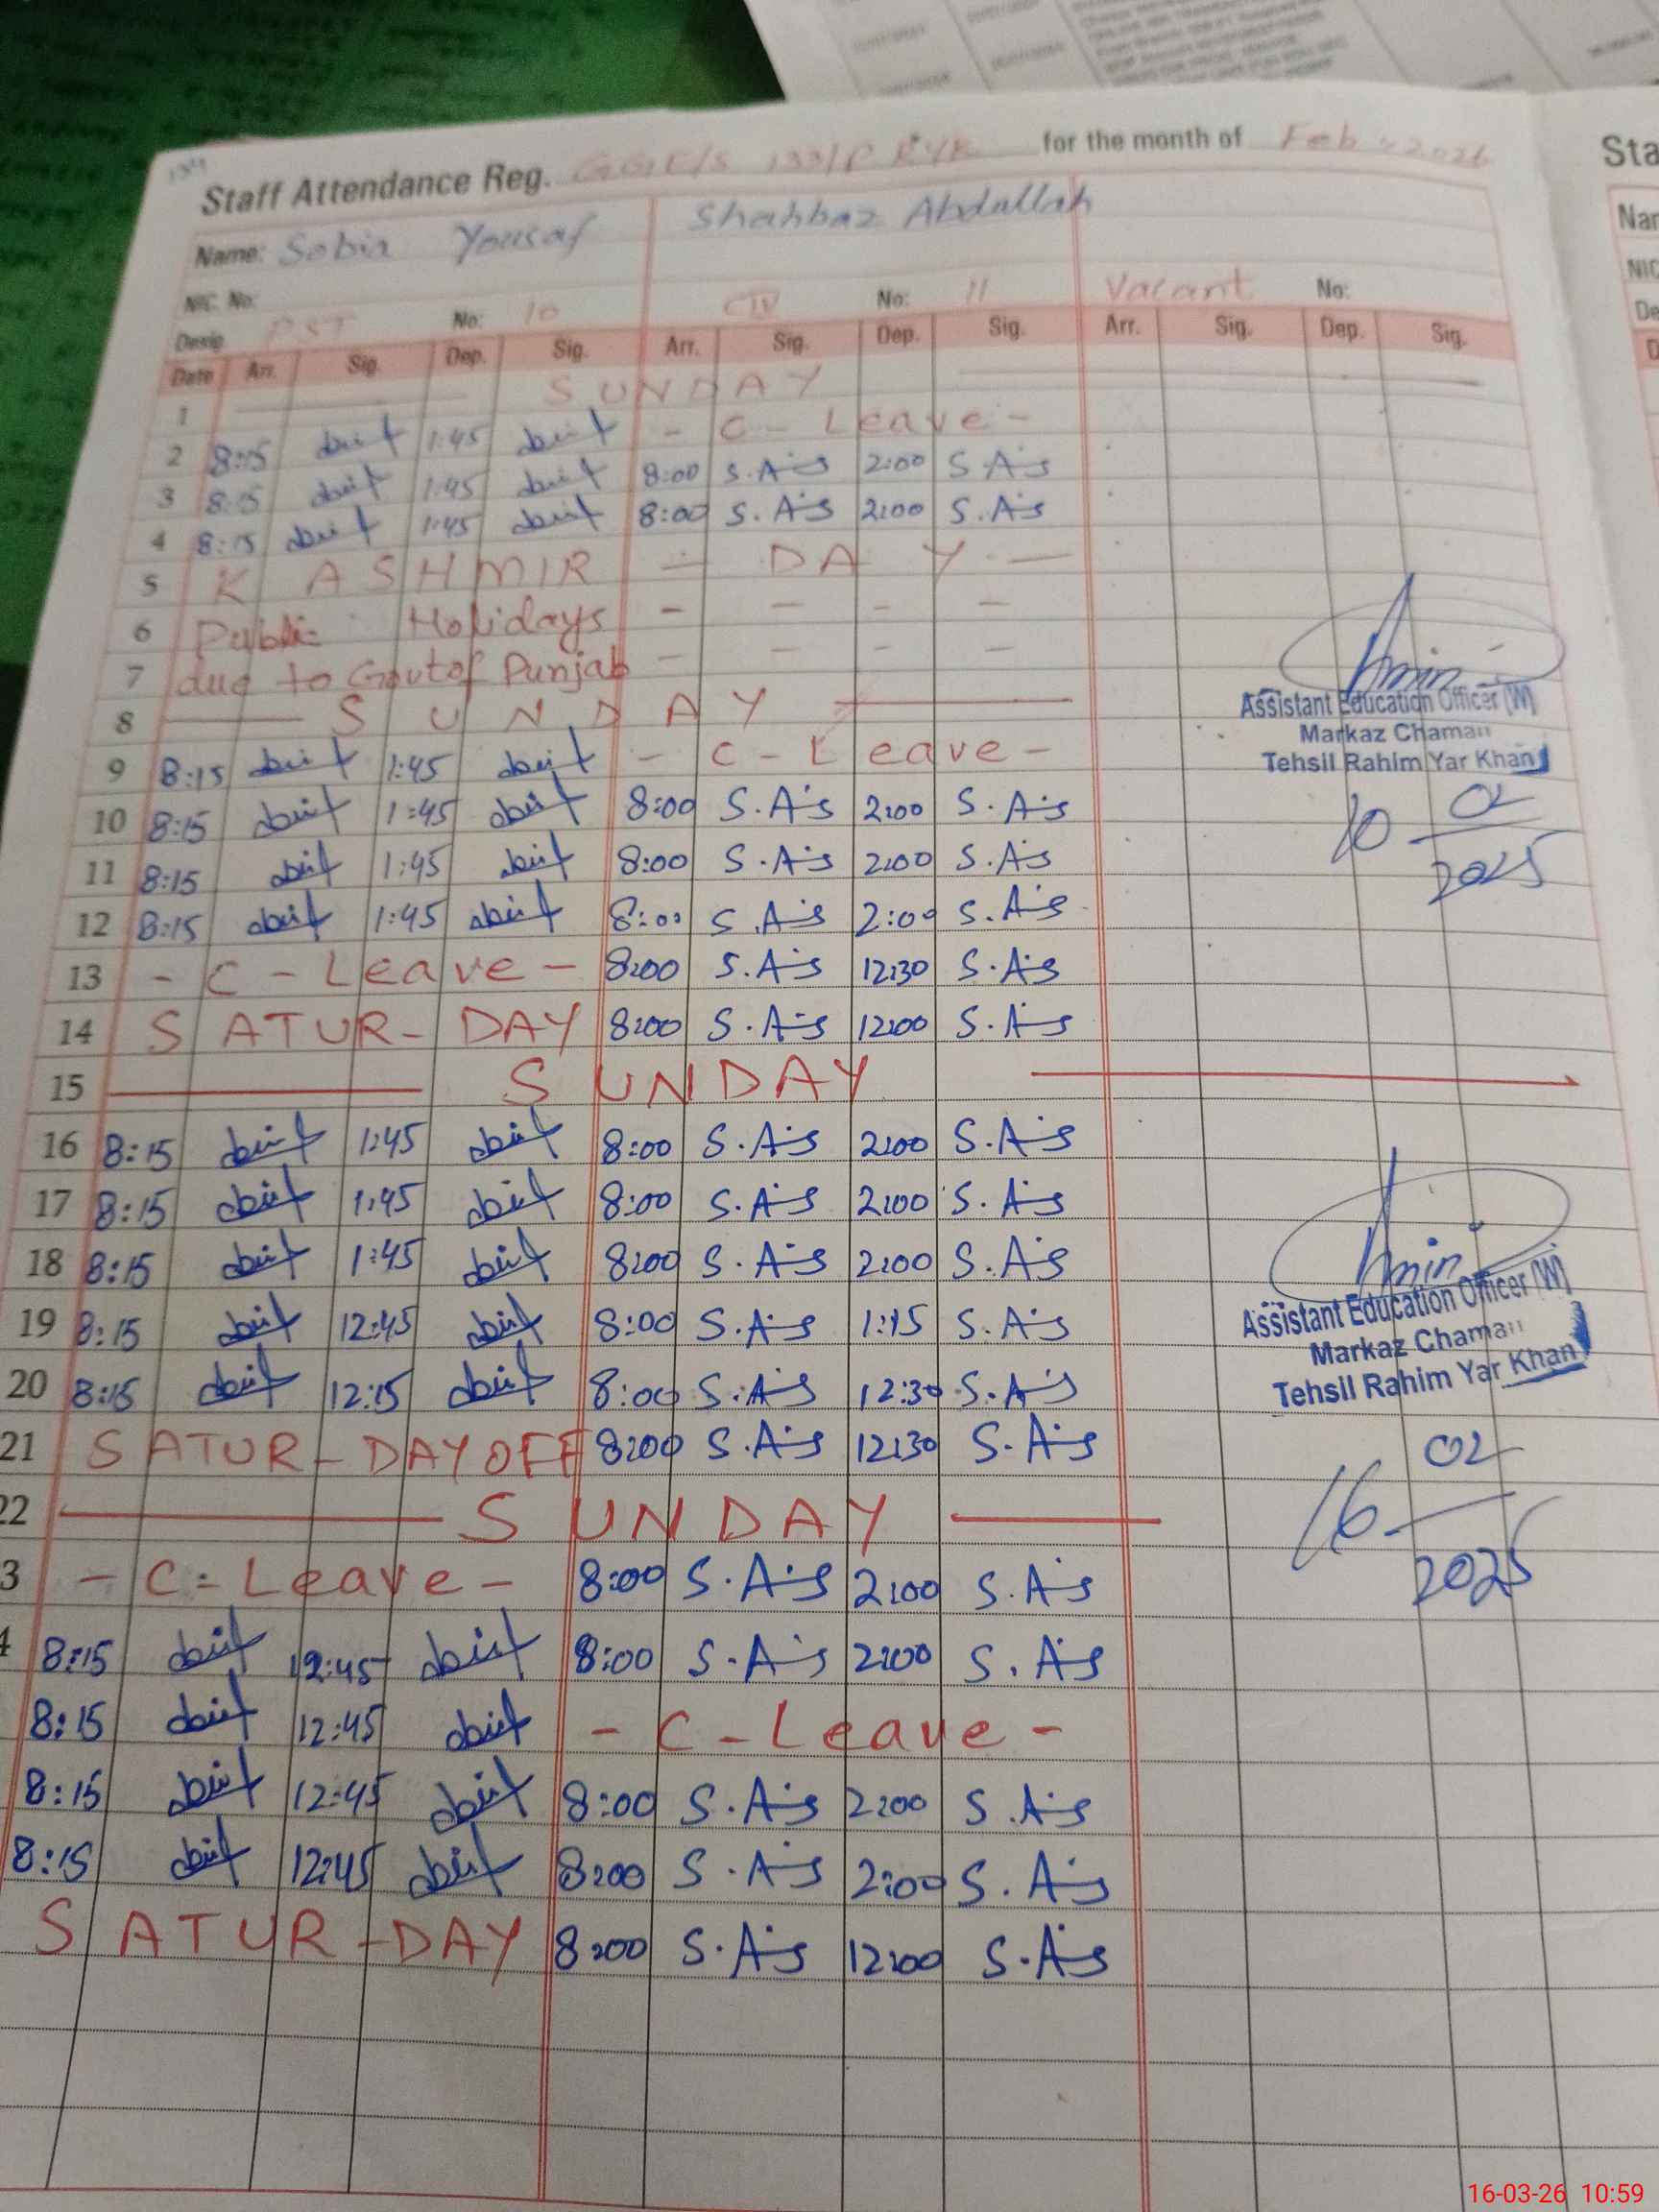 Staff Attendance Reg. GGE/S 133/P RYK for the month of Feb 2026
Name: Sobia Yousaf Shahbaz Abdullah
NIC. No:
Desig. PST No: 10 CIV No: 11 Vacant No:
Date Arr. Sig. Dep. Sig. Arr. Sig. Dep. Sig. Arr. Sig. Dep. Sig.
1 SUNDAY
2 8:15 1:45 - C - Leave -
3 8:15 1:45 8:00 S.A's 2:00 S.A's
4 8:15 1:45 8:00 S.A's 2:00 S.A's
5 KASHMIR - DAY -
6 Public Holidays - - - -
7 due to Govt of Punjab - - - -
8 SUNDAY
Assistant Education Officer (W)
Markaz Chaman
Tehsil Rahim Yar Khan
9 8:15 1:45 - C - Leave -
10 8:15 1:45 8:00 S.A's 2:00 S.A's
10 02
2025
11 8:15 1:45 8:00 S.A's 2:00 S.A's
12 8:15 1:45 8:00 S.A's 2:00 S.A's
13 - C - Leave - 8:00 S.A's 12:30 S.A's
14 SATUR-DAY 8:00 S.A's 12:00 S.A's
15 SUNDAY
16 8:15 1:45 8:00 S.A's 2:00 S.A's
17 8:15 1:45 8:00 S.A's 2:00 S.A's
18 8:15 1:45 8:00 S.A's 2:00 S.A's
Amin
Assistant Education Officer (W)
Markaz Chaman
Tehsil Rahim Yar Khan
19 8:15 12:45 8:00 S.A's 1:15 S.A's
20 8:15 12:15 8:00 S.A's 12:30 S.A's
21 SATUR-DAY OFF 8:00 S.A's 12:30 S.A's
16 02
2025
22 SUNDAY
3 - C - Leave - 8:00 S.A's 2:00 S.A's
4 8:15 12:45 8:00 S.A's 2:00 S.A's
8:15 12:45 - C - Leave -
8:15 12:45 8:00 S.A's 2:00 S.A's
8:15 12:45 8:00 S.A's 2:00 S.A's
SATUR-DAY 8:00 S.A's 12:00 S.A's
Sta
Nar
NIC
De
D
16-03-26 10:59